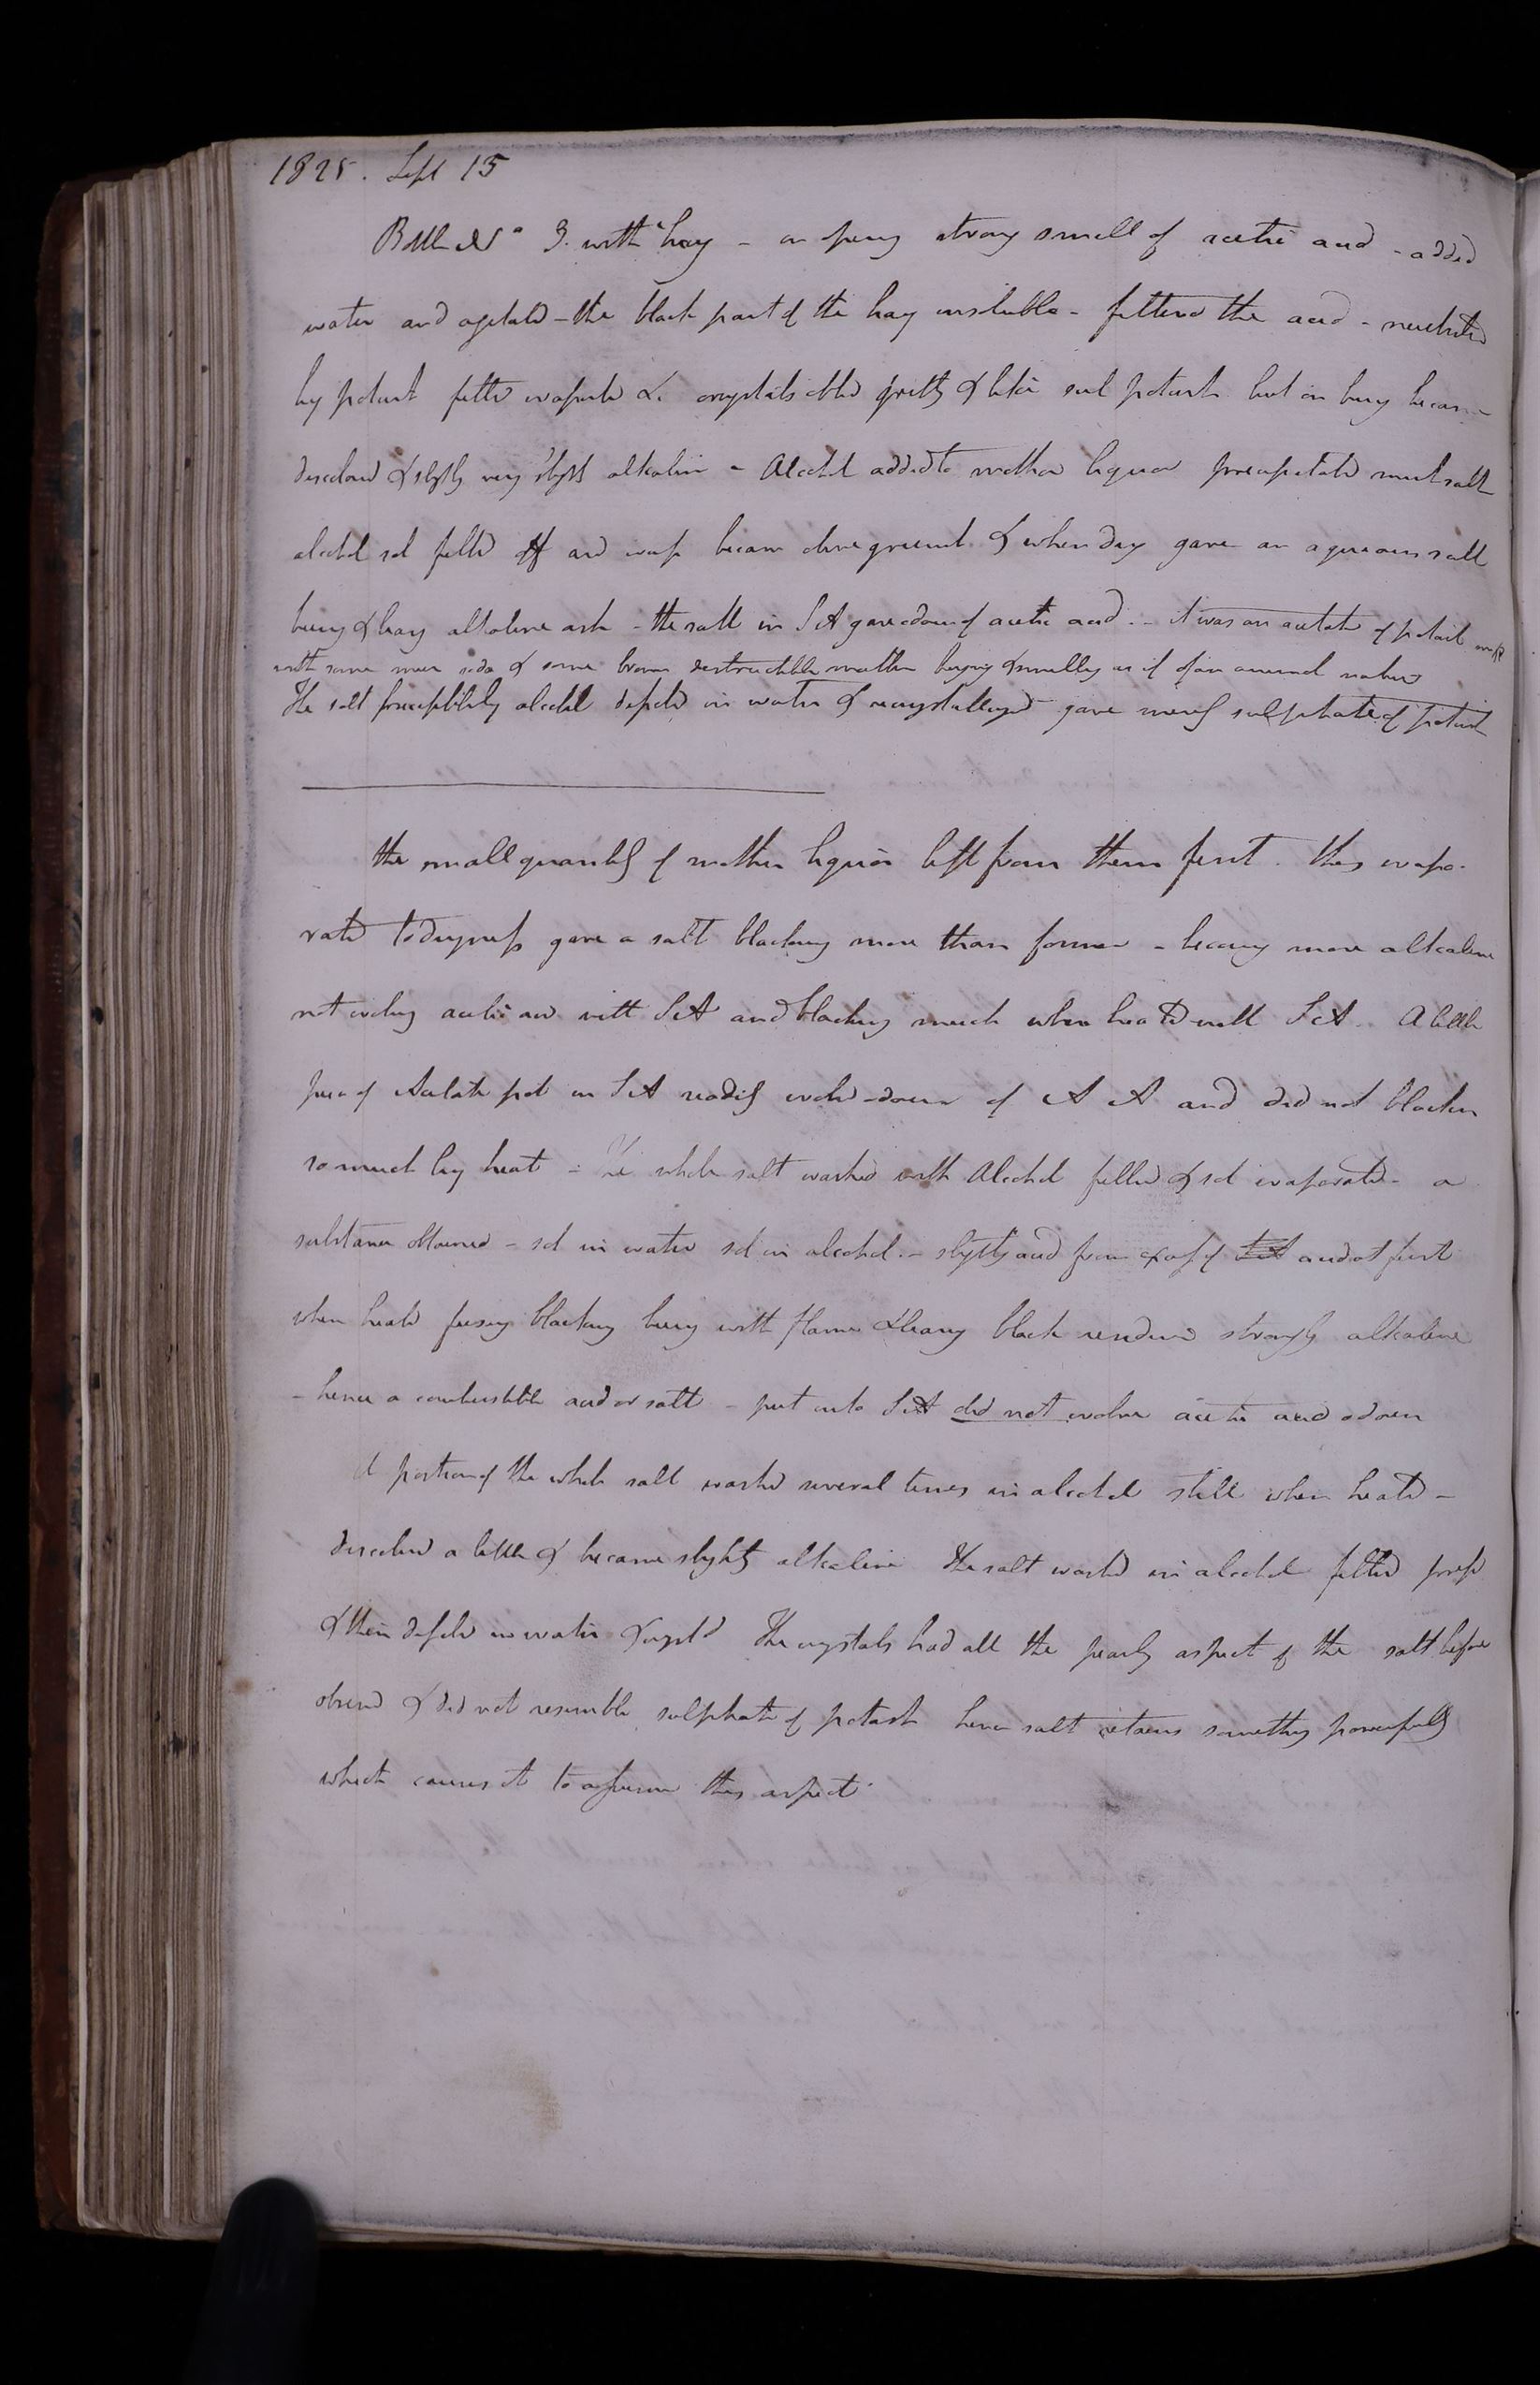 1825. Sept 15
Bottle No 3. with hay - on openg strong smell of acetic acid - added
water and agitated - the black part of the hay insoluble - filtered the acid - neutrlted
by potash filtd evaportd &c crystals obtd pretty & like sul potash but on burng became
discolored & slightly very slightly alkaline - Alcohol added to mother liquor precipitated much salt
alcohol sol filtd off and evap became olive green & when dry gave an aqueous salt
burng & leavg alkaline ash - the salt in S A gave odour of acetic acid. - it was an acetate of potash
with some mur soda & some brown destructible matter burning & smelling as if of an animal nature
The salt precipitated by alcohol dissolved in water & recrystallized gave merely sulphate of potash
the small quantity of mother liquor left from them first. this evapo-
rated to dryness gave a salt blackeng more than former - becomg more alkaline
not evolvg acetic acid with S A and blackeng much when heated with S A. A little
piece of Acetate pot in S A readily evolvd odour of A A and did not blacken
so much by heat - The whole salt washed with Alcohol filtd & sol evaporated - a
substance obtained - sol in water sol in alcohol. - slightly acid from excess of S A acid at first
when heated fusing blackeng burng with flame & leavg black residue strongly alkaline
- hence a combustible acid or salt - put into S A did not evolve acetic acid odour
A portion of the whole salt washed several times in alcohol still when heated -
discolord a little & became slightly alkaline The salt washd in alcohol filtd pressd
& then dissolvd in water & crystd The crystals had all the pearly aspect of the salt before
obsered & did not resemble sulphate of potash hence salt retains something powerfully
which causes it to assume this aspect.